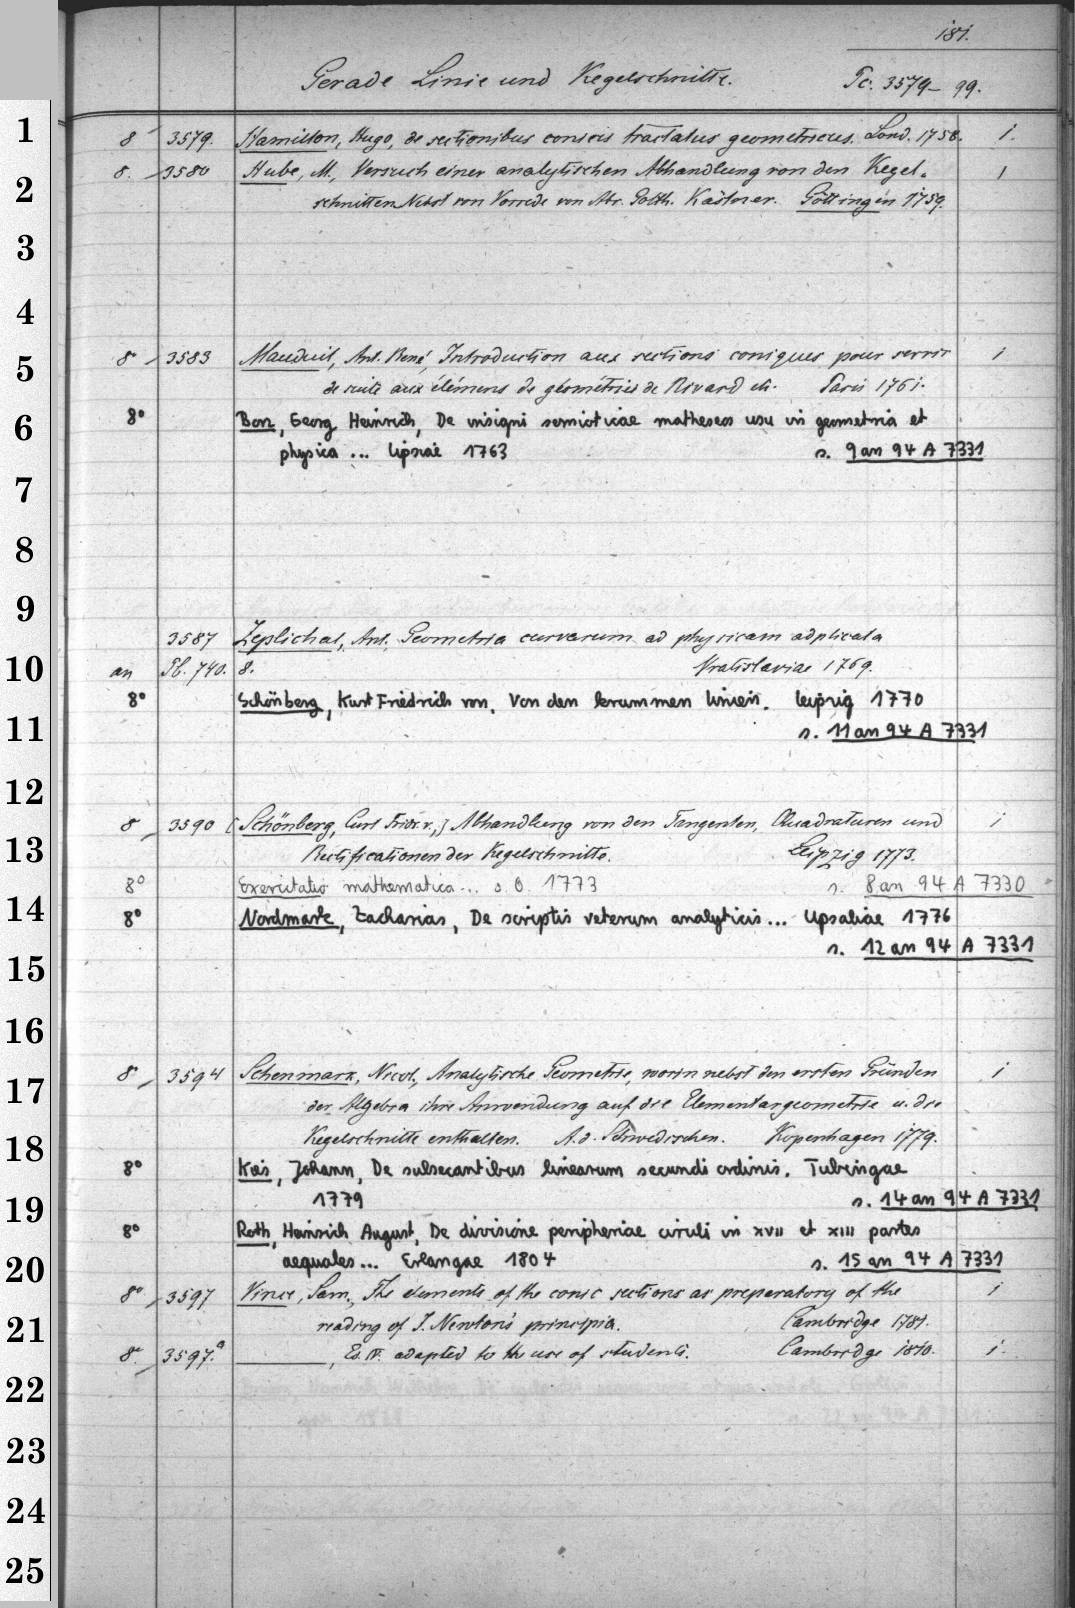 181.
Gerade Linie und Kegelschnitte. Pc. 3579-99.
1
8 3579. Hamilton, Hugo, de sectionibus conicis tractatus geometricus. Lond. 1758. 1.
8. 3580 Hube, M., Versuch einer analytischen Abhandlung von den Kegel- 1
2
schnitten. Nebst von Vorrede von Abr. Gotth. Kästner. Göttingen 1759.
3
4
8 3583 Mauduit, Ant. René, Introduction aux sections coniques pour servir 1
5
de suite aux élémens de géométrie de Rivard etc. Paris 1761.
6
8° Borz, Georg Heinrich, De insigni semioticae matheseos usu in geometria et
physica ... Lipsiae 1763 s. 9 an 94 A 7331
7
8
9
3587 Zeplichal, Ant. Geometria curvarum ad physicam adplicata
10
an Pb. 740. 8. Vratislaviae 1769.
8° Schönberg, Kurt Friedrich von, Von den krummen Linien. Leipzig 1770
11
s. 11 an 94 A 7331
12
8 3590 (Schönberg, Curt Fridr. v.,) Abhandlung von den Tangenten, Quadraturen und 1
13
Rectificationen der Kegelschnitte. Leipzig 1773.
8° Exercitatio mathematica ... s. O. 1773 s. 8 an 94 A 7330
14
8° Nordmark, Zacharias, De scriptis veterum analyticis ... Upsaliae 1776
s. 12 an 94 A 7331
15
16
8 3594 Schenmark, Nicol., Analytische Geometrie, worin nebst den ersten Gründen 1
17
der Algebra ihre Anwendung auf die Elementargeometrie u. die
18
Kegelschnitte enthalten. A. d. Schwedischen. Kopenhagen 1779.
8° Kies, Johann, De subsecantibus linearum secundi ordinis. Tubingae
19
1779 s. 14 an 94 A 7331
8° Roth, Heinrich August, De divisione peripheriae circuli in XVII et XIII partes
20
aequales ... Erlangae 1804 s. 15 an 94 A 7331
8° 3597 Vince, Sam., The elements of the conic sections as preparatory of the 1
21
reading of J. Newton's principia. Cambridge 1781.
8° 3597.a ______, Ed. IV. adapted to the use of students. Cambridge 1810. 1.
22
23
24
25